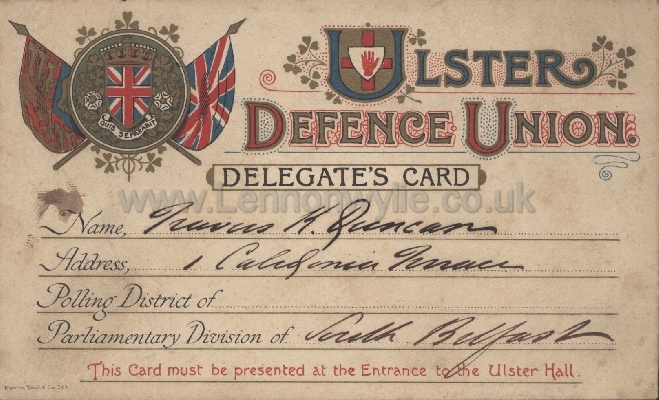 ULSTER
DEFENCE UNION.
DELEGATE'S CARD
www.Lennonwylie.co.uk
Name, Travers K. Duncan
Address, 1 Caledonia Terrace
Polling District of
Parliamentary Division of South Belfast
This Card must be presented at the Entrance to the Ulster Hall.